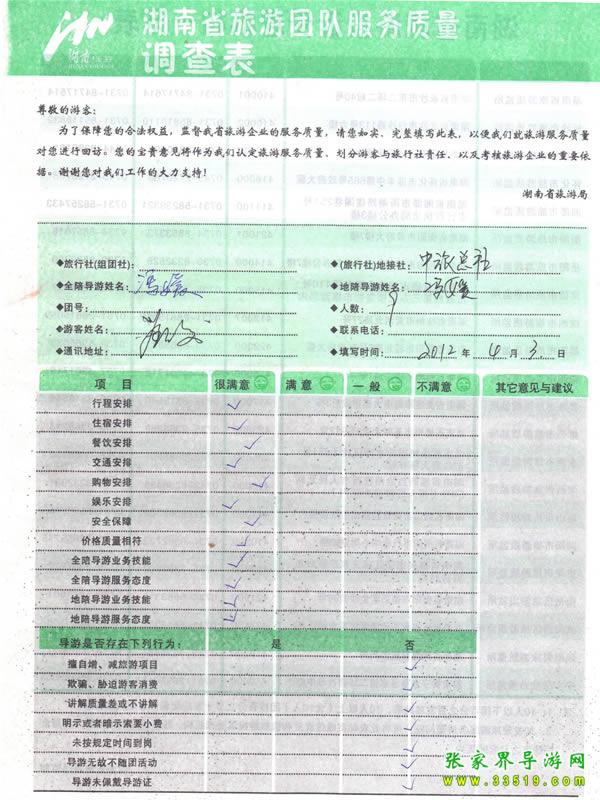 湖南省旅游团队服务质量
调查表
尊敬的游客：
为了保障您的合法权益，监督我省旅游企业的服务质量，请您如实、完整填写此表，以便我们就旅游服务质量
对您进行回访。您的宝贵意见将作为我们认定旅游服务质量、划分游客与旅行社责任、以及考核旅游企业的重要依
据。谢谢您对我们工作的大力支持！
湖南省旅游局
◆旅行社(组团社)：
◆(旅行社)地接社： 中旅总社
◆全陪导游姓名：
◆地陪导游姓名：
◆团号：
◆人数： 9
◆游客姓名：
◆联系电话：
◆通讯地址：
◆填写时间： 2012 年 4 月 3 日
项 目 很满意 满 意 一 般 不满意 其它意见与建议
行程安排 ✓
住宿安排 ✓
餐饮安排 ✓
交通安排 ✓
购物安排 ✓
娱乐安排 ✓
安全保障 ✓
价格质量相符 ✓
全陪导游业务技能 ✓
全陪导游服务态度 ✓
地陪导游业务技能 ✓
地陪导游服务态度 ✓
导游是否存在下列行为： 是 否
擅自增、减旅游项目 ✓
欺骗、胁迫游客消费 ✓
讲解质量差或不讲解 ✓
明示或者暗示索要小费 ✓
未按规定时间到岗 ✓
导游无故不随团活动 ✓
导游未佩戴导游证 ✓
张家界导游网
www.33519.com